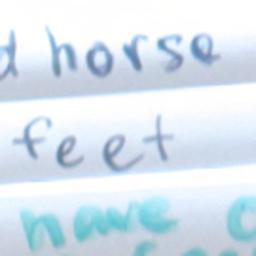 d horse
feet
have